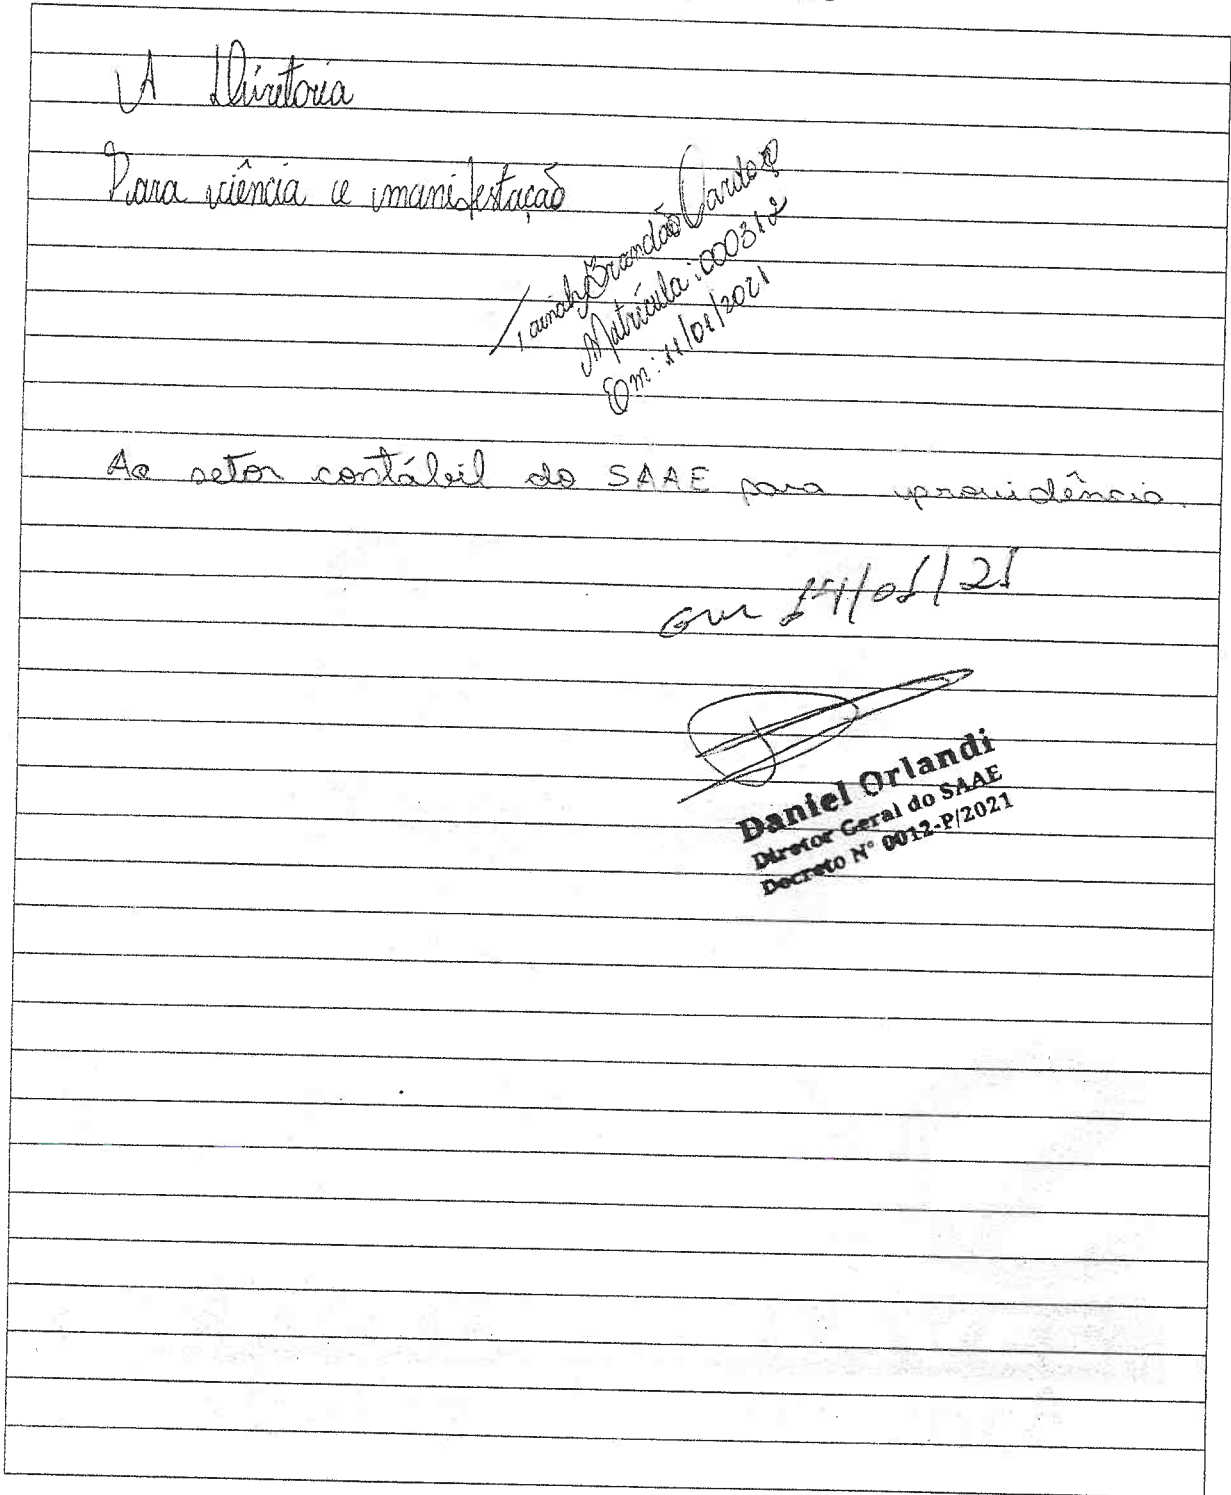 A Diretoria
Para ciência e manifestação
Tainaly Brandão Cardoso
Matrícula: 000312
Em: 11/01/2021
Ao setor contábil do SAAE para providência.
em 14/01/21
Daniel Orlandi
Diretor Geral do SAAE
Decreto N° 0012-P/2021